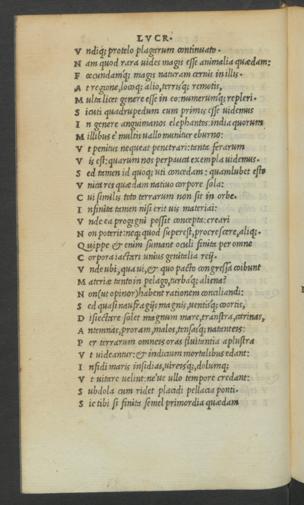 LVCR.
V ndiq; protelo plagarum continuato.
N am quod rara uides magis esse animalia quædam:
F œcundamq; magis naturam cernis in illis.
A t regione, locoq; alio, terrisq; remotis,
M ulta licet genere esse in eo: numerumq; repleri.
S icuti quadrupedum cum primis esse uidemus
I n genere anguimanos elephantos: india quorum
M illibus è multis uallo munitur eburno:
V t penitus nequeat penetrari: tanta ferarum
V is est: quarum nos perpauca exempla uidemus.
S ed tamen id quoq; uti concædam: quamlubet esto
V nica res quædam natiuo corpore sola:
C ui similis toto terrarum non sit in orbe.
I nfinita tamen nisi erit uis materiai:
V nde ea progigni possit concepta: creari
N on poterit: neq; quod superest, procrescere, aliq;.
Q uippe & enim sumant oculi finita per omne
C orpora iactari unius genitalia rei;.
V nde ubi, qua ui, & quo pacto congressa coibunt
M ateriæ tanto in pelago, turbaq; aliena?
N on (ut opinor) habent rationem conciliandi:
S ed quasi naufragijs magnis, uentisq; coortis,
D isiectare solet magnum mare, transtra, carinas,
A ntemnas, proram, malos, tensasq; natanteis:
P er terrarum omneis oras fluitantia aplustra
V t uideantur: & indicium mortalibus edant:
I nfidi maris insidias, uireisq;, dolumq;
V t uitare uelint: ne'ue ullo tempore credant:
S ubdola cum ridet placidi pellacia ponti.
S ic tibi si finita semel primordia quædam